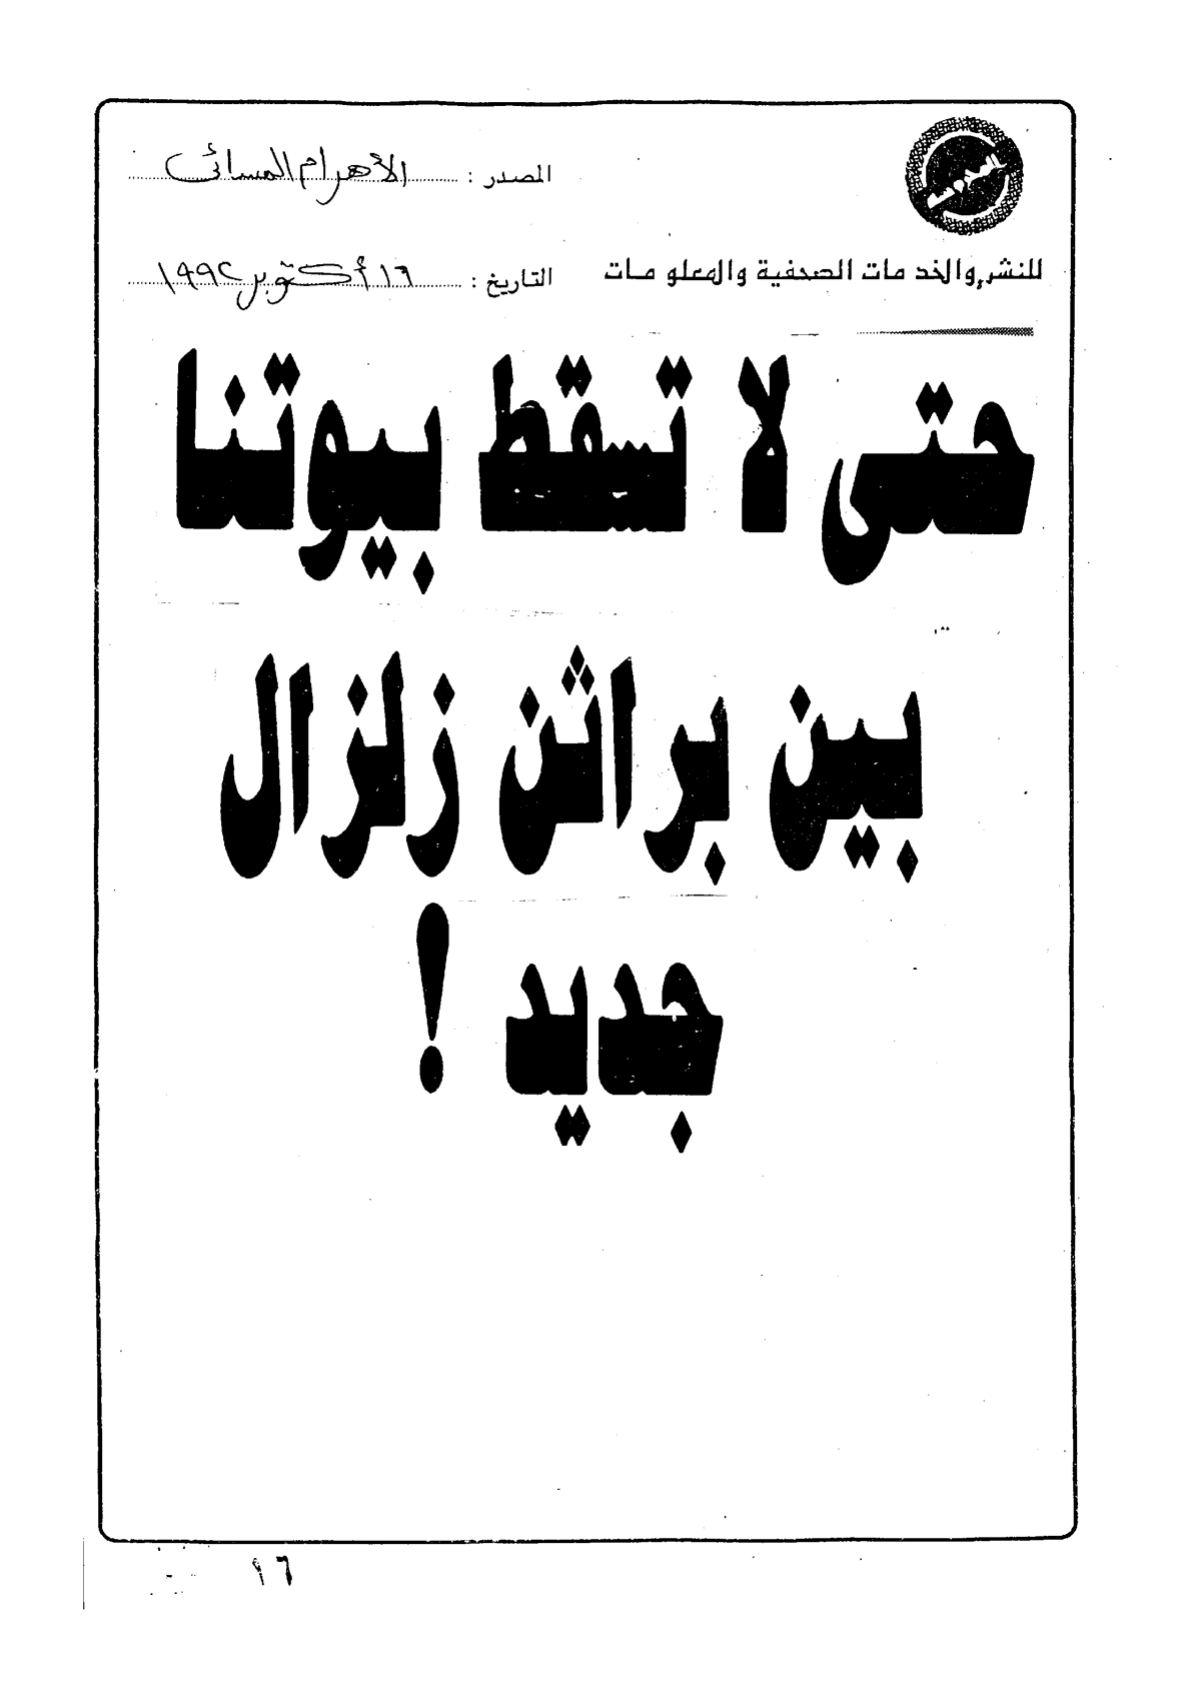 المصدر : الأهرام المسائى
للنشر والخدمات الصحفية والمعلومات
التاريخ : ١٦ أكتوبر ١٩٩٢
حتى لا تسقط بيوتنا
بين براثن زلزال
جديد !